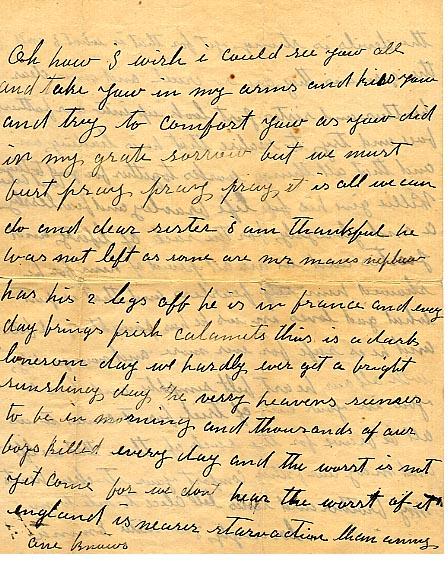 Oh how I wish i could see yow all
and take yow in my arms and kiss yow
and trey to comfort yow as yow did
in my grate sorrow but we must
burt pray pray pray it is all we can
do and dear sister I am thankful he
was not left as some are mr mares nephew
has his 2 legs off he is in france and evey
day brings frish calamits this is a dark
lonesom day we hardly ever get a bright
sunshiney day the verry heavens semes
to be in morning and thousands of our
boys killed every day and the worst is not
yet come for we dont hear the worst of it
england is nearer starvaction than anny
one knows